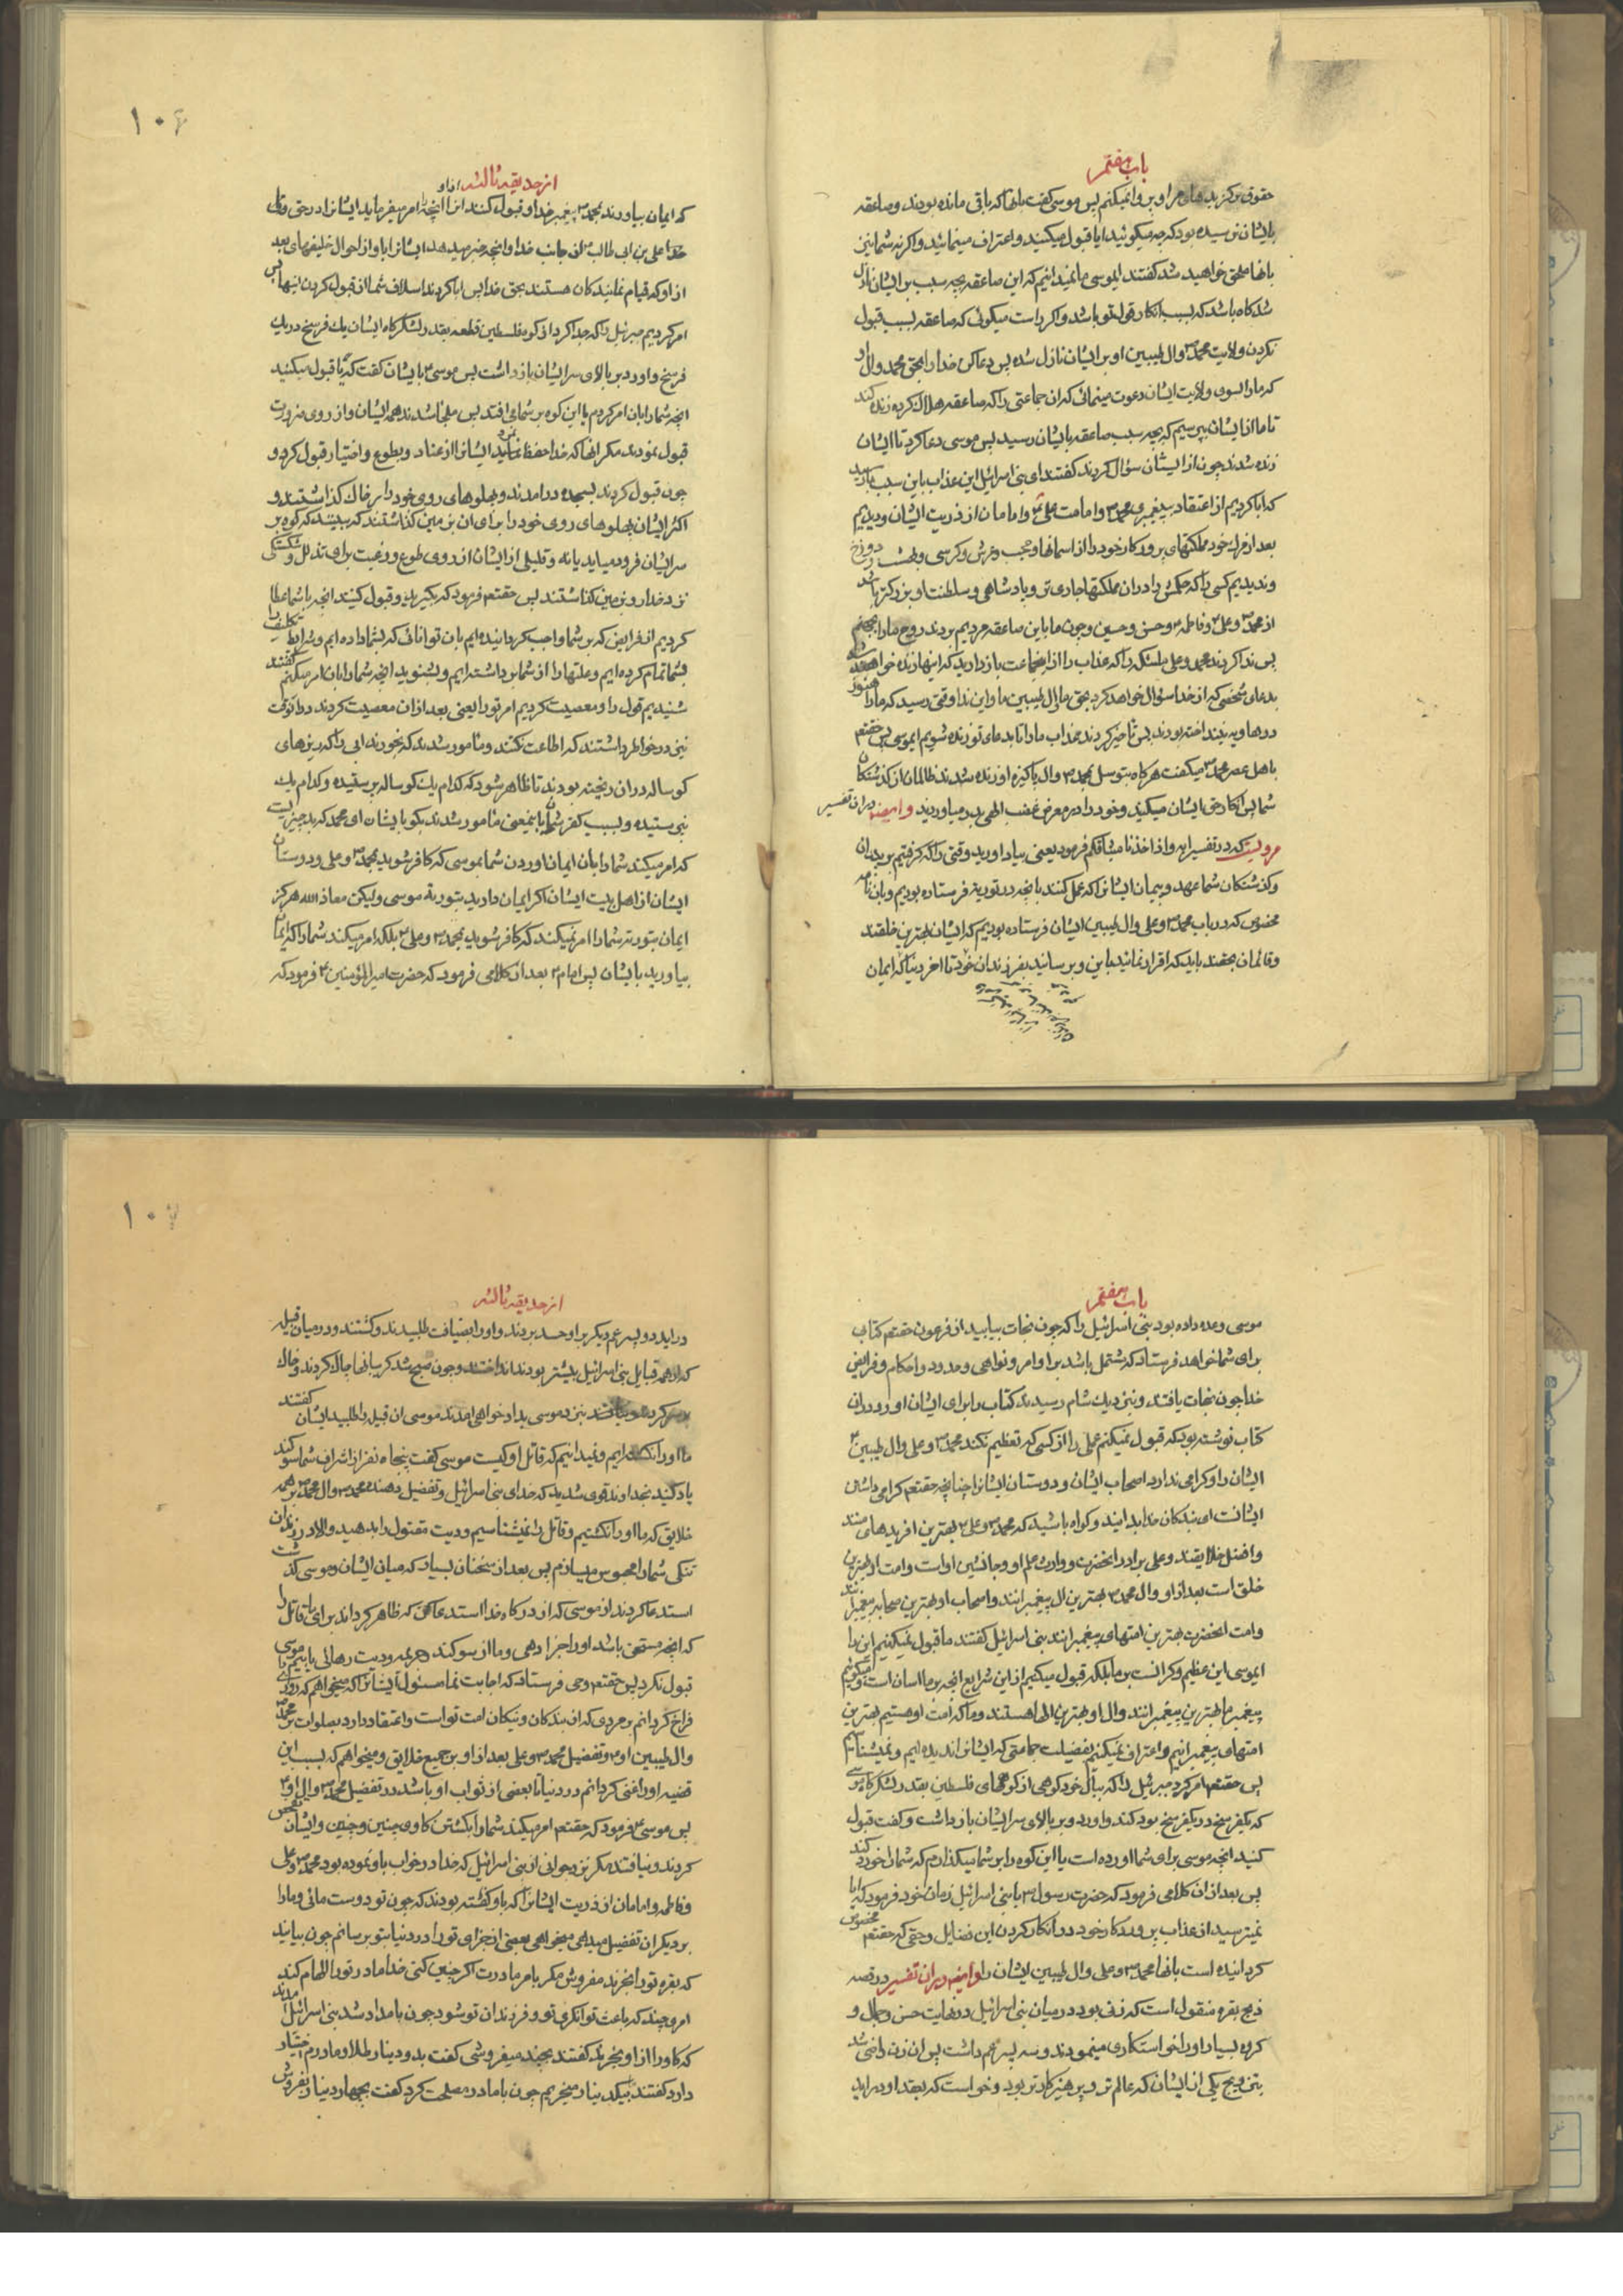 باب هفتم
حقوق برگزیدهای مرا و پروا نمیکنم پس موسی گفت بانها که باقی مانده بودند و صاعقه
بایشان نرسیده بود که چه میگوئید ایا قبول میکنید و اعتراف مینمائید و اگرنه شما نیز
بانها ملحق خواهید شد گفتند ایموسی ما نمیدانیم که این صاعقه بچه سبب بر ایشان نازل
شد گاه باشد که بسبب انکار قول تو باشد و اگر راست میگوئی که صاعقه بسبب قبول
نکردن ولایت محمد و ال طیبین او بر ایشان نازل شده پس دعا کن خدا را بحق محمد و ال او
که ما را بسوی ولایت ایشان دعوت مینمائی که ان جماعتی را که صاعقه هلاک کرده زنده کند
تا ما از ایشان بپرسیم که بچه سبب صاعقه بایشان رسید پس موسی دعا کرد تا ایشان
زنده شدند چون از ایشان سؤال کردند گفتند ای بنی اسرائیل این عذاب باین سبب بما رسید
که ابا کردیم از اعتقاد به پیغمبری محمد و امامت علی و امامان از ذریت ایشان و دیدیم
بعد از مرگ خود مملکتهای پرورد کار خود را از اسمانها و حجب و عرش و کرسی و بهشت و دوزخ
و ندیدیم کسی را که حکمش را در ان مملکتها جاری تر و پادشاهی و سلطنت او بزرگتر باشد
از محمد و علی و فاطمه و حسن و حسین و چون ما باین صاعقه مردیم بردند روح ما را بجهنم
پس ندا کردند محمد و علی ملائکه را که عذاب را از اینجماعت باز دارید که اینها زنده خواهند شد
بدعای شخصی که از خدا سؤال خواهد کرد بحق ما و ال طیبین ما و این ندا وقتی رسید که ما را هنوز
در هاویه نینداخته بودند پس تأخیر کردند عذاب ما را تا بدعای تو زنده شویم ایموسی پس حقتعم
باهل عصر محمد میگفت هرگاه بتوسل بمحمد و ال پاکیزه او زنده شدند ظالمان از گذشتگان
شما پس انکار حق ایشان میکنید و خود را در معرض غضب الهی بدر میاورید و ایضا در ان تفسیر
مرویست که در تفسیر ایه و اذ اخذنا میثاقکم فرمود یعنی بیاد اورید وقتی را که گرفتیم بر پدران
و گذشتگان شما عهد و پیمان ایشان را که عمل کنند بانچه در توریة فرستاده بودیم و بان نامه
مخصوص که در باب محمد و علی و ال طیبین ایشان فرستاده بودیم که ایشان بهترین خلقند
و قائمان بحقند باید که اقرار نمائید باین و برسانید بفرزندان خود تا اخر دنیا که ایمان
۱۰۶
از حدیقه ثالثه
که ایمان بیاورند بمحمد پیغمبر خدا و قبول کنند از او انچه امر میفرماید ایشانرا در حق ولی
خدا علی بن ابی طالب از جانب خدا و انچه خبر میدهد ایشانرا باو از احوال خلیفهای بعد
از او که قیام نمایندگان هستند بحق خدا پس ابا کردند اسلاف شما از قبول کردن اینها پس
امر کردیم جبرئیل را که جدا کرد از کوه فلسطین قطعه بقدر لشکرگاه ایشان یک فرسخ در یک
فرسخ و اورد بر بالای سر ایشان بازداشت پس موسی بایشان گفت که یا قبول میکنید
انچه شما را بان امر کردم یا این کوه بر شما می افتد پس ملجأ شدند همه ایشان و از روی ضرورت
قبول نمودند مگر انها که خدا حفظ نمود ایشانرا از عناد و بطوع و اختیار قبول کردند و
چون قبول کردند بسجده درامدند و پهلوهای روی خود را بر خاک گذاشتند و
اکثر ایشان پهلوهای روی خود را برای ان بزمین گذاشتند که ببینند که کوه بر
سر ایشان فرود میاید یا نه و قلیلی از ایشان از روی طوع و رغبت برای تذلل و شکستگی
نزد خدا رو بزمین گذاشتند پس حقتعم فرمود که بگیرید و قبول کنید انچه را شما عطا
کردیم از فرایض که بر شما واجب گردانیده ایم بان توانائی که بشما داده ایم و شرایط تکلیف را
بشما تمام کرده ایم و علتها را از شما برداشته ایم و بشنوید انچه شما را بان امر میکنم گفتند
شنیدیم قول را و معصیت کردیم امر تو را یعنی بعد از ان معصیت کردند در انوقت
نیز در خاطر داشتند که اطاعت نکنند و مامور شدند که بخورند ابی را که ریزهای
گوساله در ان ریخته بودند تا ظاهر شود که کدام یک گوساله پرستیده و کدام یک
نپرستیده و بسبب کفر شما باینمعنی مامور شدند بگو بایشان ای محمد که بد چیزیست
که امر میکند شما را بان ایمان اوردن شما بموسی که کافر شوید بمحمد و علی و دوستان
ایشان از اهل بیت ایشان اگر ایمان دارید بتوریة موسی ولیکن معاذ الله هرگز
ایمان بتوریة شما را امر نمیکند که کافر شوید بمحمد و علی بلکه امر میکند شما را که ایمان
بیاورید بایشان پس امام بعد از کلامی فرمود که حضرت امیر المؤمنین فرمود که
باب هفتم
موسی وعده داده بود بنی اسرائیل را که چون نجات بیابید از فرعون حقتعم کتاب
برای شما خواهد فرستاد که مشتمل باشد بر اوامر و نواهی و حدود و احکام و فرایض
خدا چون نجات یافتند و نزدیک شام رسیدند کتاب را برای ایشان اورد و در ان
کتاب نوشته بود که قبول نمیکنم عملی را از کسی که تعظیم نکند محمد و علی و ال طیبین
ایشان را و گرامی ندارد اصحاب ایشان و دوستان ایشانرا چنانچه حقتعم گرامی داشتن
ایشانست ای بندگان خدا بدانید و گواه باشید که محمد و علی بهترین افریدهای منند
و افضل خلایقند و علی برادر انحضرت و وارث علم او و جانشین اوست و امت او بهترین
خلق است بعد از او و ال محمد بهترین ال پیغمبرانند و اصحاب او بهترین صحابه پیغمبرانند
و امت انحضرت بهترین امتهای پیغمبرانند بنی اسرائیل گفتند ما قبول نمیکنیم این را
ایموسی این عظیم و گرانست بر ما بلکه قبول میکنیم از این شرایع انچه بر ما اسان است و میگوئیم
پیغمبر ما بهترین پیغمبرانند و ال او بهترین الها هستند و ما که امت او هستیم بهترین
امتهای پیغمبرانیم و اعتراف نمیکنیم بفضیلت جماعتی که ایشانرا ندیده ایم و نمیشناسیم
پس حقتعم امر کرد جبرئیل را که ببال خود کوهی از کوههای فلسطین بقدر لشکرگاه موسی
که یکفرسخ در یکفرسخ بود کند و اورد و بر بالای سر ایشان بازداشت و گفت قبول
کنید انچه موسی برای شما اورده است یا این کوه را بر شما میگذارم که شما را خورد کند
پس بعد از ان کلامی فرمود که حضرت رسول با بنی اسرائیل زمان خود فرمود که ایا
نمیترسید از عذاب پروردکار خود در انکار کردن این فضایل و حقی که حقتعم مخصوص
گردانیده است بانها محمد و علی و ال طیبین ایشان را و ایضا در ان تفسیر در قصه
ذبح بقره منقول است که زنی بود در میان بنی اسرائیل در نهایت حسن و جمال و
گروه بسیار او را خواستگاری مینمودند و سه پسر عم داشت پس ان زن راضی شد
بتزویج یکی از ایشان که عالم تر و پرهیزکارتر بود و خواست که بعقد او دراید
۱۰۷
از حدیقه ثالثه
دراید دو پسر عم دیگر بر او حسد بردند و او را بضیافت طلبیدند و کشتند و در میان قبیله
که از همه قبایل بنی اسرائیل بیشتر بودند انداختند و چون صبح شد گریبانها چاک کردند و خاک
بر سر کردند نزد موسی بدادخواهی امدند موسی ان قبیله را طلبید ایشان گفتند
ما او را نکشته ایم و نمیدانیم که قاتل او کیست موسی گفت پنجاه نفر از اشراف شما سوگند
یاد کنید بخداوند قوی شدید که خدای بنی اسرائیل و تفضیل دهنده محمد و ال محمد بر همه
خلایق که ما او را نکشتیم و قاتل را نمیشناسیم و دیت مقتول را بدهید و الا در زندان
تنگی شما را محبوس میسازم پس بعد از سخنان بسیار که میان ایشان و موسی گذشت
استدعا کردند از موسی که از درگاه خدا استدعا کن که ظاهر گرداند برای ما قاتل را
که انچه مستحق باشد او را جزا دهی و ما از سوگند و غرامت و دیت رهائی یابیم موسی
قبول نکرد پس حقتعم وحی فرستاد که اجابت نما مسئول ایشانرا که میخواهم که روزی را
فراخ گردانم بر مردی که از بندگان و نیکان امت تو است و اعتقاد دارد بصلوات بر محمد
و ال طیبین او و تفضیل محمد و علی بعد از او بر جمیع خلایق و میخواهم که بسبب این
قضیه او را غنی گردانم در دنیا تا بعضی از ثواب او باشد در تفضیل محمد و ال او
پس موسی فرمود که حقتعم امر میکند شما را بکشتن گاوی چنین و چنین و ایشان تفحص
کردند و نیافتند مگر نزد جوانی از بنی اسرائیل که خدا در خواب باو نموده بود محمد و علی
و فاطمه و امامان از ذریت ایشانرا که باو گفته بودند که چون تو دوست مائی و ما را
بر دیگران تفضیل میدهی میخواهی بعضی از جزای تو را در دنیا بتو برسانم چون بیایند
که بقره تو را بخرند مفروش مگر بامر مادرت اگر چنین کنی خدا مادر تو را الهام کند
امری چند که باعث توانگری تو و فرزندان تو شود چون بامداد شد بنی اسرائیل امدند
که گاو را از او بخرند گفتند بچند میفروشی گفت بدو دینار طلا و مادرم اختیار
دارد گفتند بیکدینار میخریم چون با مادر مصلحت کرد گفت بچهار دینار بفروش